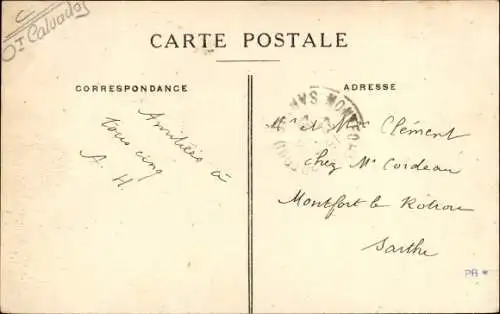 Dt Calvados
CARTE POSTALE
CORRESPONDANCE
ADRESSE
Amitiés à
tous cinq
A. H.
Mr et Mme Clément
chez Mr Cordeau
Montfort le Rotrou
Sarthe
PB *